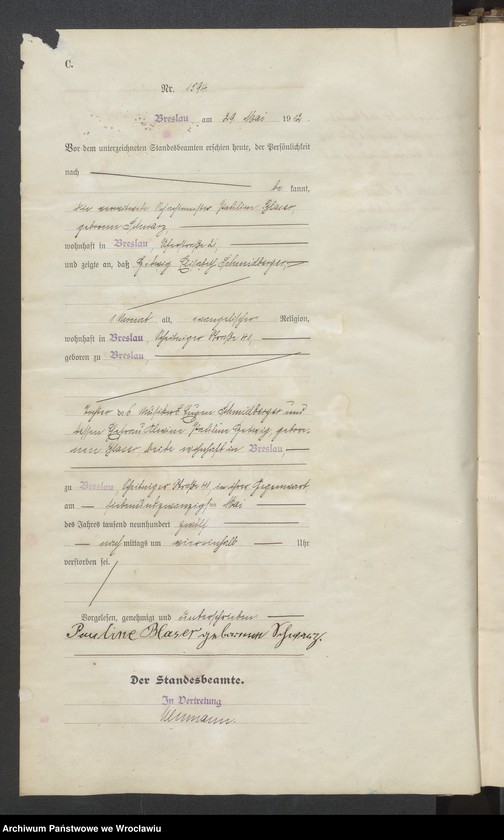 C.
Nr. 1594
Breslau, am 29 Mai 1912.
Vor dem unterzeichneten Standesbeamten erschien heute, der Persönlichkeit
nach
be kannt,
die verwitwete Pauline Glaser,
geborene Schwarz,
wohnhaft in Breslau,
und zeigte an, daß Hedwig Elisabeth Schmidberger,
1 Monat alt, evangelischer Religion,
wohnhaft in Breslau, Scheitniger Straße 41,
geboren zu Breslau,
Tochter des Musikers Eugen Schmidberger und
dessen Ehefrau Alwine Pauline Hedwig, gebore-
nen Glaser, beide wohnhaft in Breslau,
zu Breslau, Scheitniger Straße 41, in ihrer Gegenwart
am siebenundzwanzigsten Mai
des Jahres tausend neunhundert zwölf
nach mittags um viereinhalb Uhr
verstorben sei.
Vorgelesen, genehmigt und unterschrieben
Pauline Glaser geborenne Schwarz.
Der Standesbeamte.
In Vertretung
Neumann.
Archiwum Państwowe we Wrocławiu